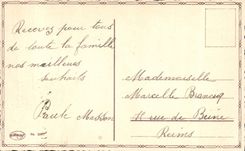 Recevez pour tous
de toute la famille
nos meilleurs
souhaits
Paule Masson
Mademoiselle
Marcelle
rue de
Reims